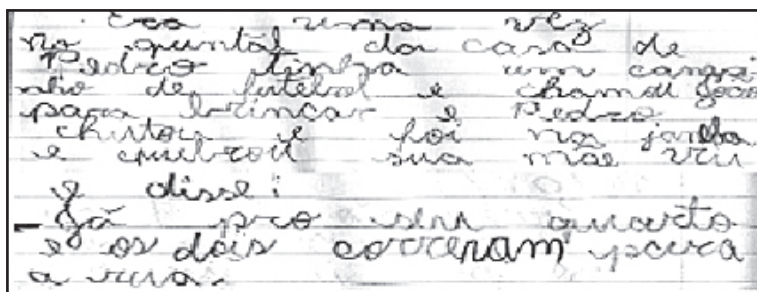 Era uma vez
no quintal da casa de
Pedro tinha um campi-
nho de futebol e chamou João
para brincar e Pedro
chutou e foi na janela
e quebrou sua mãe viu
e disse:
– Já pro seu quarto
e os dois correram para
a rua.